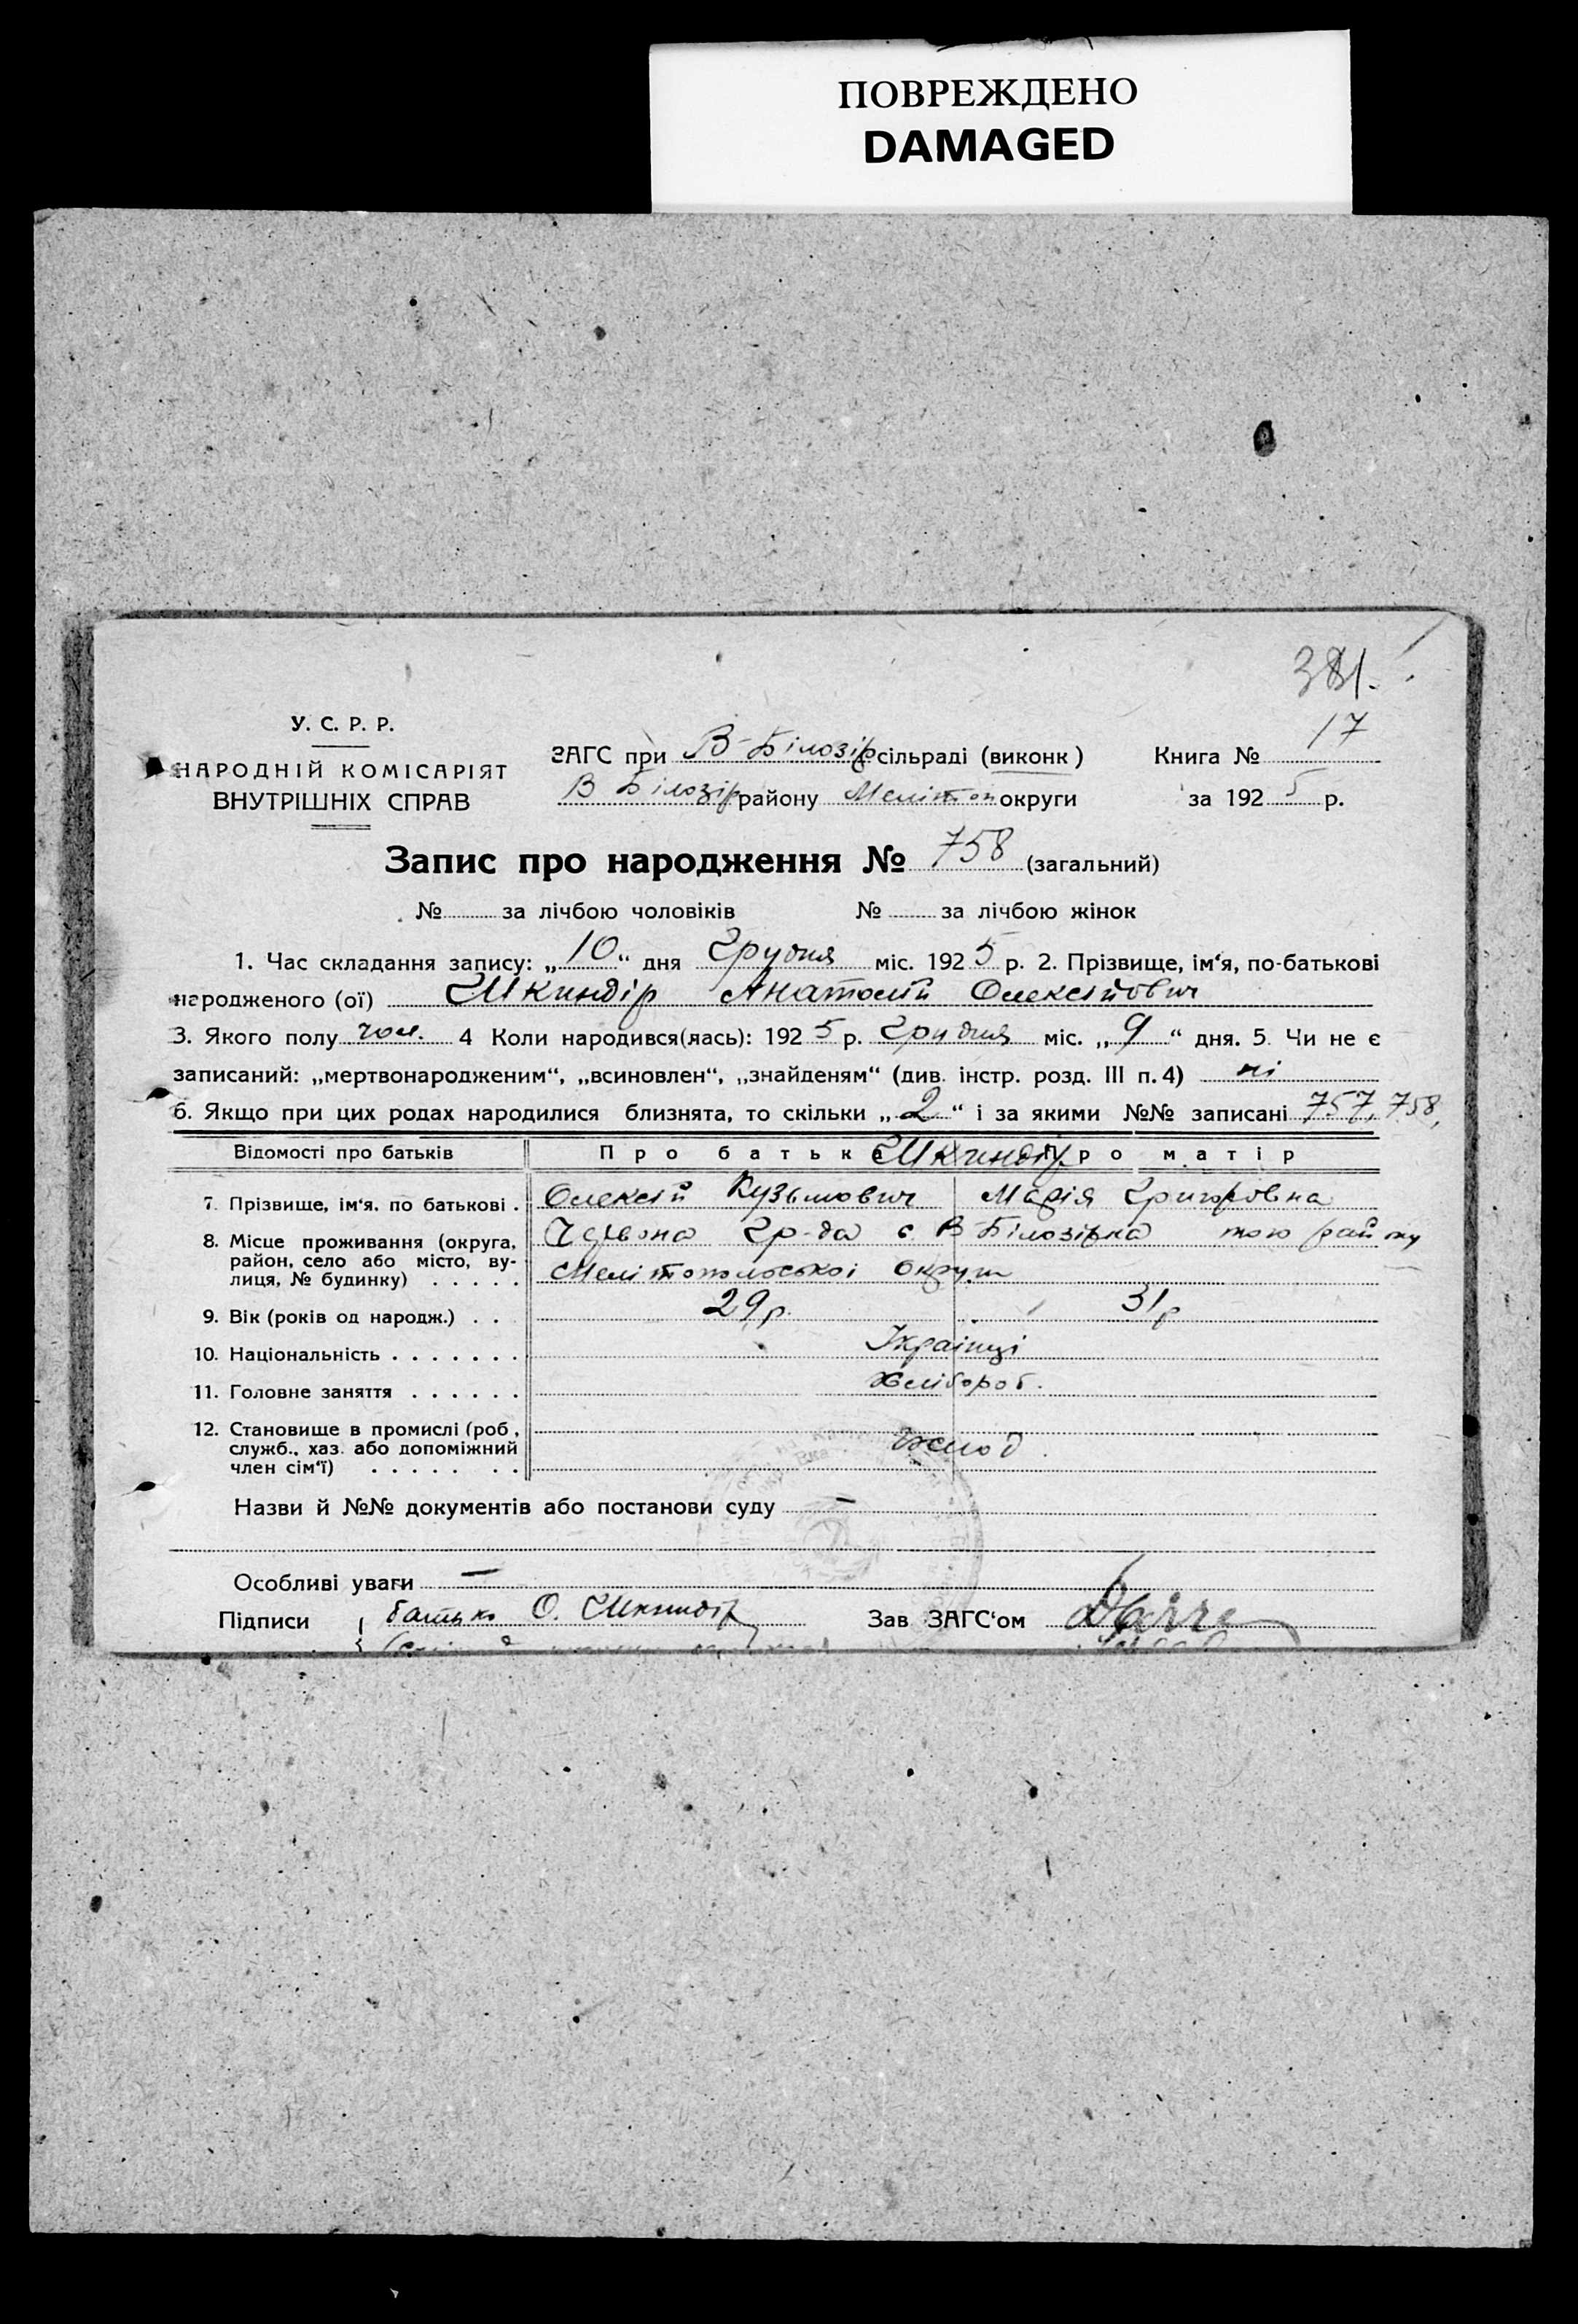 ПОВРЕЖДЕНО
DAMAGED
381.
У. С. Р. Р.
НАРОДНІЙ КОМІСАРІЯТ
ВНУТРІШНІХ СПРАВ
ЗАГС при В-Білозір сільраді (виконк)
В Білозір району Мелітоп округи
Книга № 17
за 1925 р.
Запис про народження № 758 (загальний)
№ за лічбою чоловіків № за лічбою жінок
1. Час складання запису: „10“ дня Грудня міс. 1925 р. 2. Прізвище, ім‘я, по-батькові
народженого (ої) Шкиндір Анатолій Олексійович
3. Якого полу чол. 4 Коли народився(лась): 1925 р. Грудня міс. „9“ дня. 5. Чи не є
записаний: „мертвонародженим“, „всиновлен“, „знайденям“ (див. інстр. розд. III п. 4) ні
6. Якщо при цих родах народилися близнята, то скільки „2“ і за якими №№ записані 757, 758,
Відомості про батьків Про батька Про матір
Шкиндір
7. Прізвище, ім‘я. по батькові . Олексій Кузьмович Марія Григоровна
8. Місце проживання (округа, район, село або місто, вулиця, № будинку) . . . . .
Червона гр-да с. В Білозірка того району
Мелітопольської округи
9. Вік (років од народж.) . . 29 р. 31 р
10. Національність . . . . . . . Українці
11. Головне заняття . . . . . . Хлібороб.
12. Становище в промислі (роб, служб., хаз. або допоміжний член сім‘ї) . . . . . . .
Назви й №№ документів або постанови суду –
Особливі уваги –
Підписи { батько О. Шкиндір
Зав ЗАГС‘ом